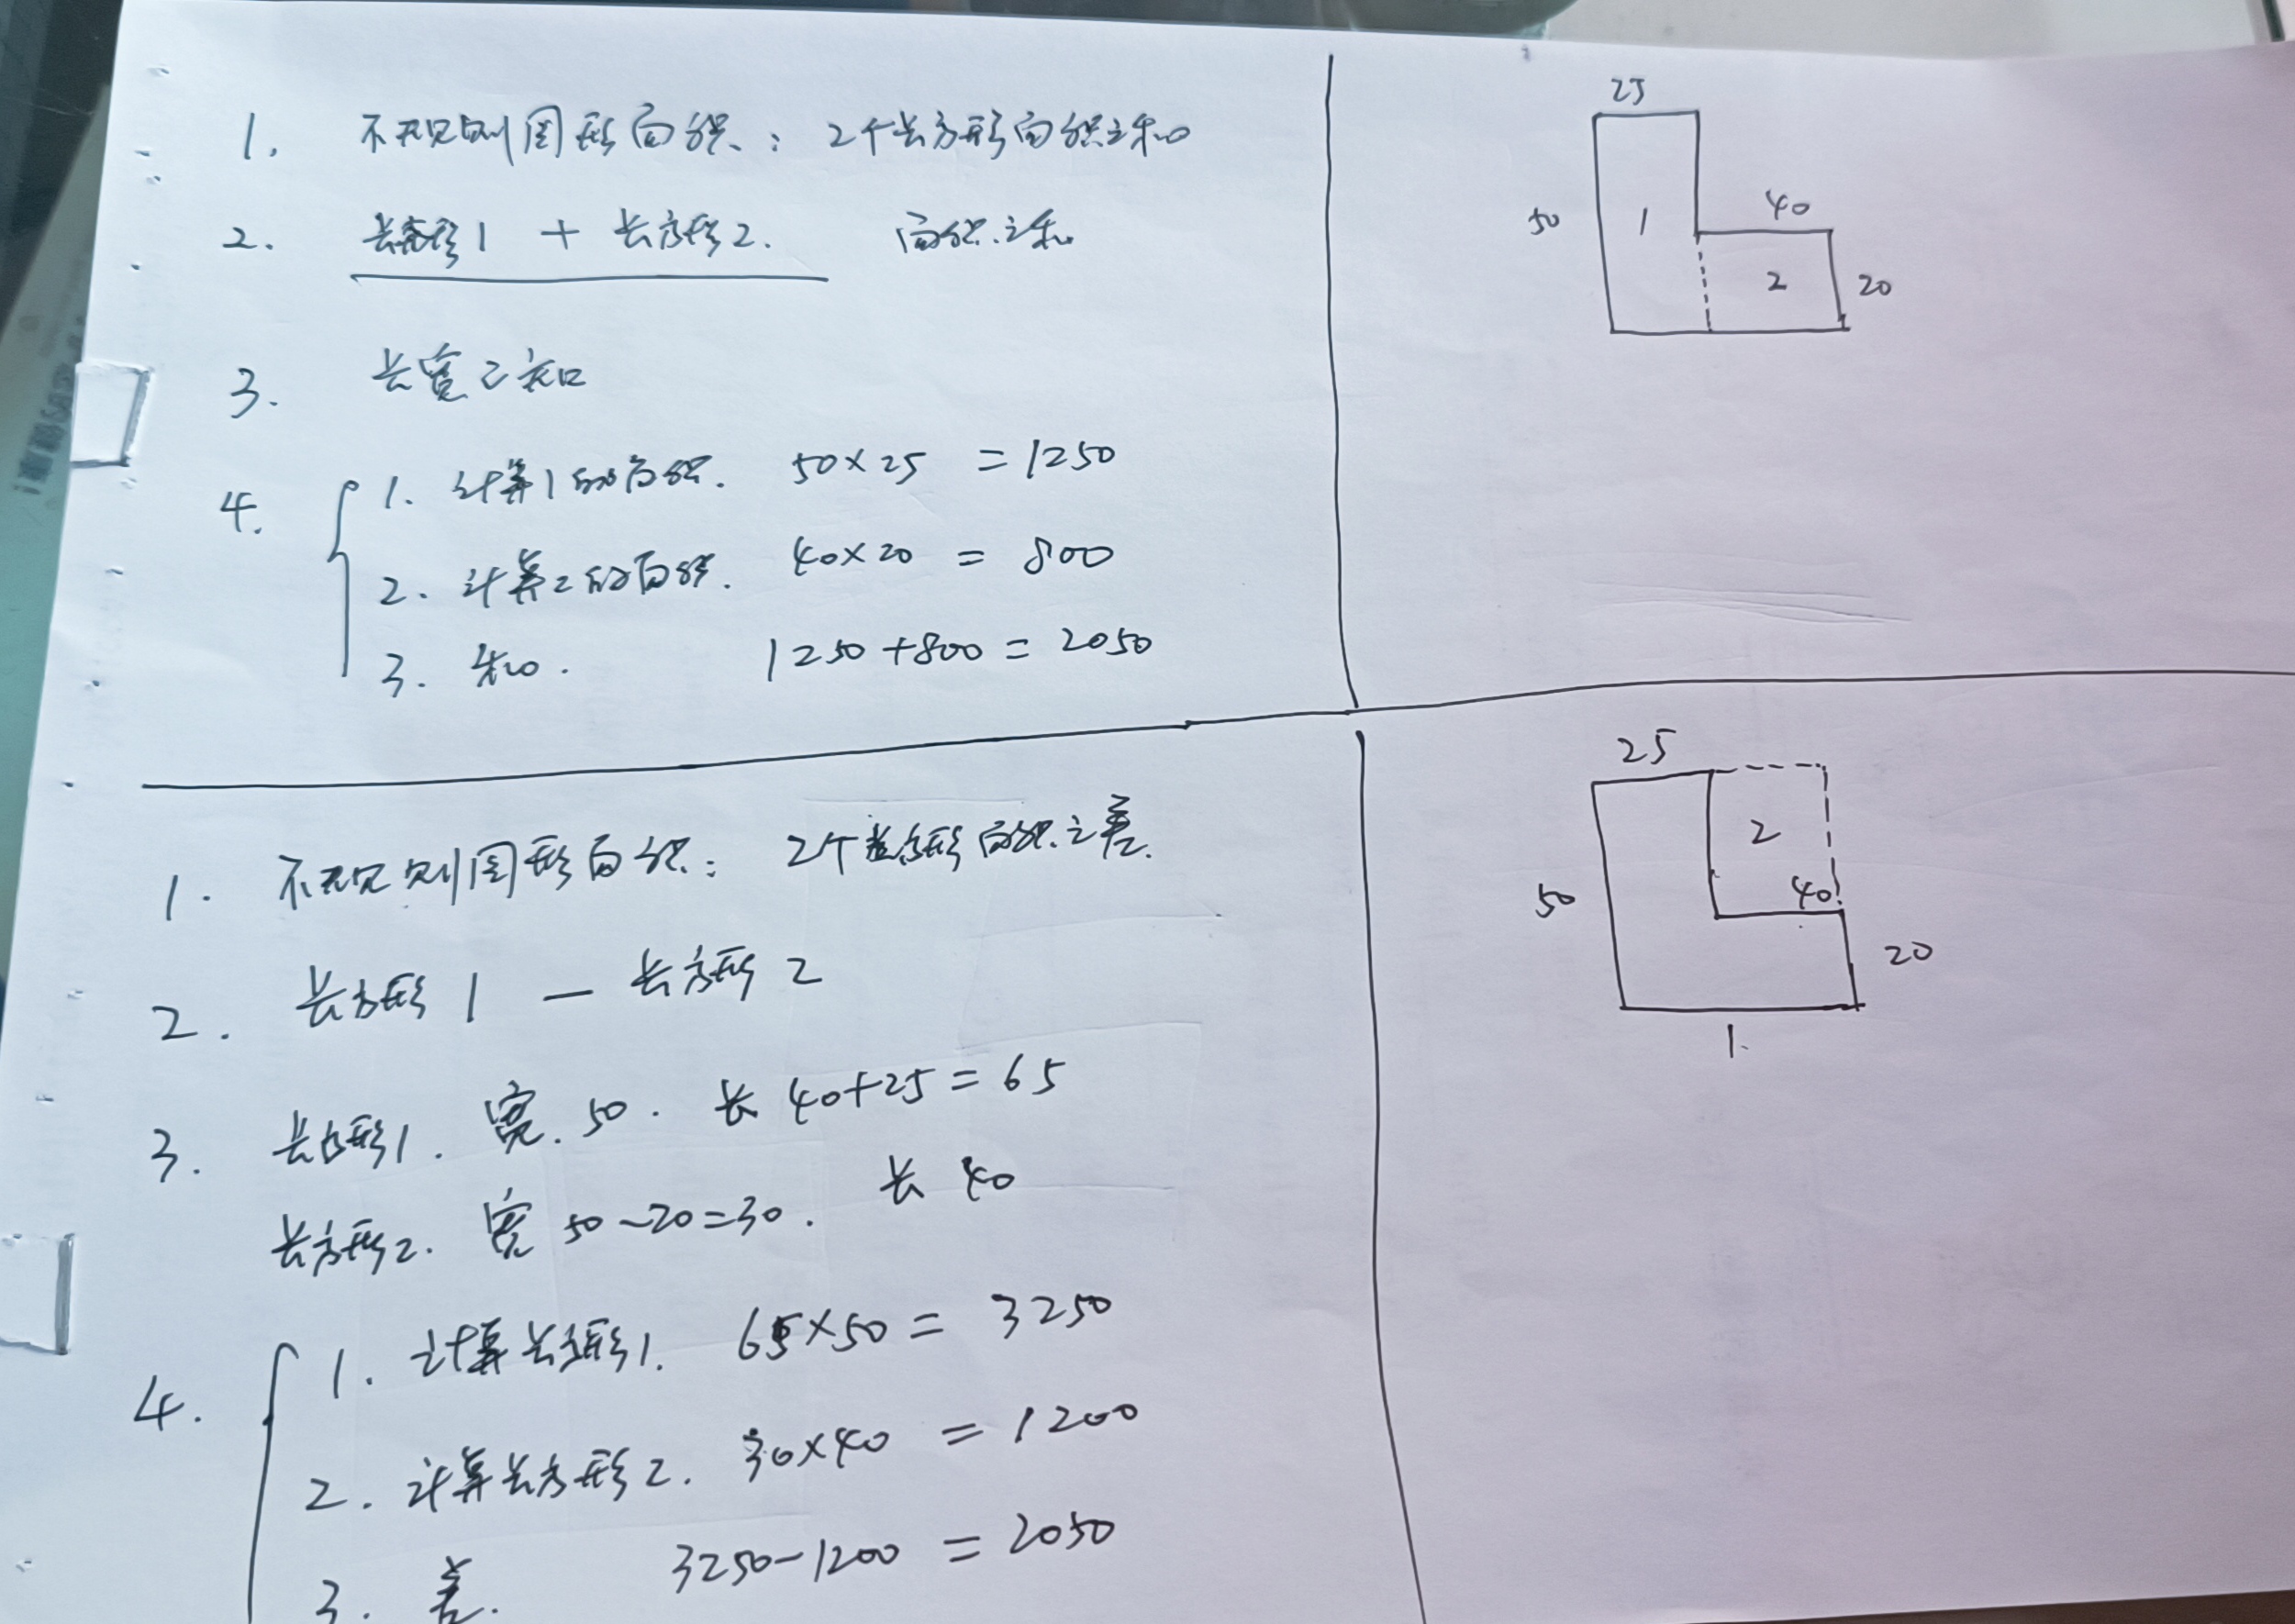 1. 不规则图形面积：2个长方形面积之和
2. 长方形1 + 长方形2. 面积之和
3. 长宽已知
4. 1. 计算1的面积. 50×25 =1250
2. 计算2的面积. 40×20 = 800
3. 和. 1250+800=2050
25
50
1
40
2
20
1. 不规则图形面积：2个长方形面积之差.
2. 长方形1 — 长方形2
3. 长方形1. 宽.50. 长 40+25=65
长方形2. 宽 50-20=30. 长 40
4. 1. 计算长方形1. 65×50= 3250
2. 计算长方形2. 30×40 = 1200
3. 差. 3250-1200 = 2050
25
2
50
40
20
1.